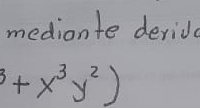 mediante deriva
3 + x³y²)